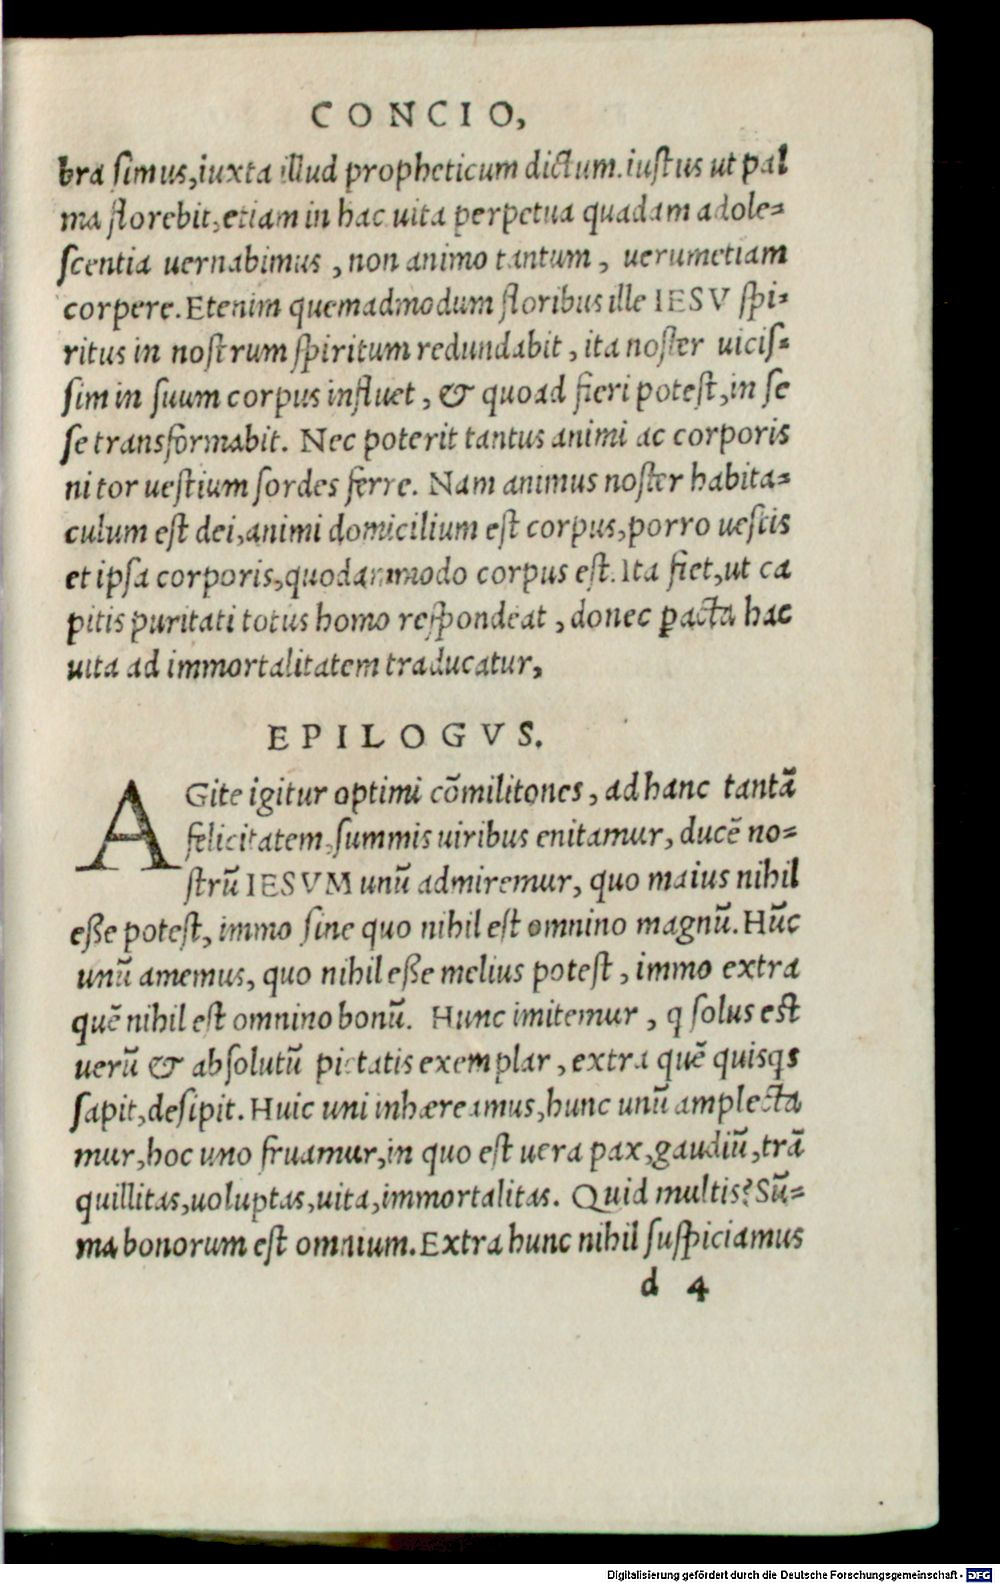 CONCIO,
bra simus,iuxta illud propheticum dictum.iustus ut pal
ma florebit,etiam in hac uita perpetua quadam adole=
scentia uernabimus , non animo tantum , uerumetiam
corpere. Etenim quemadmodum floribus ille IESV spi=
ritus in nostrum spiritum redundabit , ita noster uicis=
sim in suum corpus influet , & quoad fieri potest,in se
se transformabit. Nec poterit tantus animi ac corporis
nitor uestium sordes ferre. Nam animus noster habita=
culum est dei,animi domicilium est corpus,porro uestis
et ipsa corporis,quodammodo corpus est. Ita fiet,ut ca
pitis puritati totus homo respondeat , donec ꝑacta hac
uita ad immortalitatem traducatur,
EPILOGVS.
AGite igitur optimi cōmilitones , ad hanc tantā
felicitatem,summis uiribus enitamur, ducē no=
strū IESVM unū admiremur, quo maius nihil
eße potest, immo sine quo nihil est omnino magnū. Hūc
unū amemus, quo nihil eße melius potest , immo extra
quē nihil est omnino bonū. Hunc imitemur , q solus est
uerū & absolutū pietatis exemplar , extra quē quisqs
sapit,desipit. Huic uni inhæreamus,hunc unū amplecta
mur,hoc uno fruamur,in quo est uera pax,gaudiū,trā
quillitas,uoluptas,uita,immortalitas. Quid multis? Sū=
ma bonorum est omnium. Extra hunc nihil suspiciamus
d 4
Digitalisierung gefördert durch die Deutsche Forschungsgemeinschaft - DFG